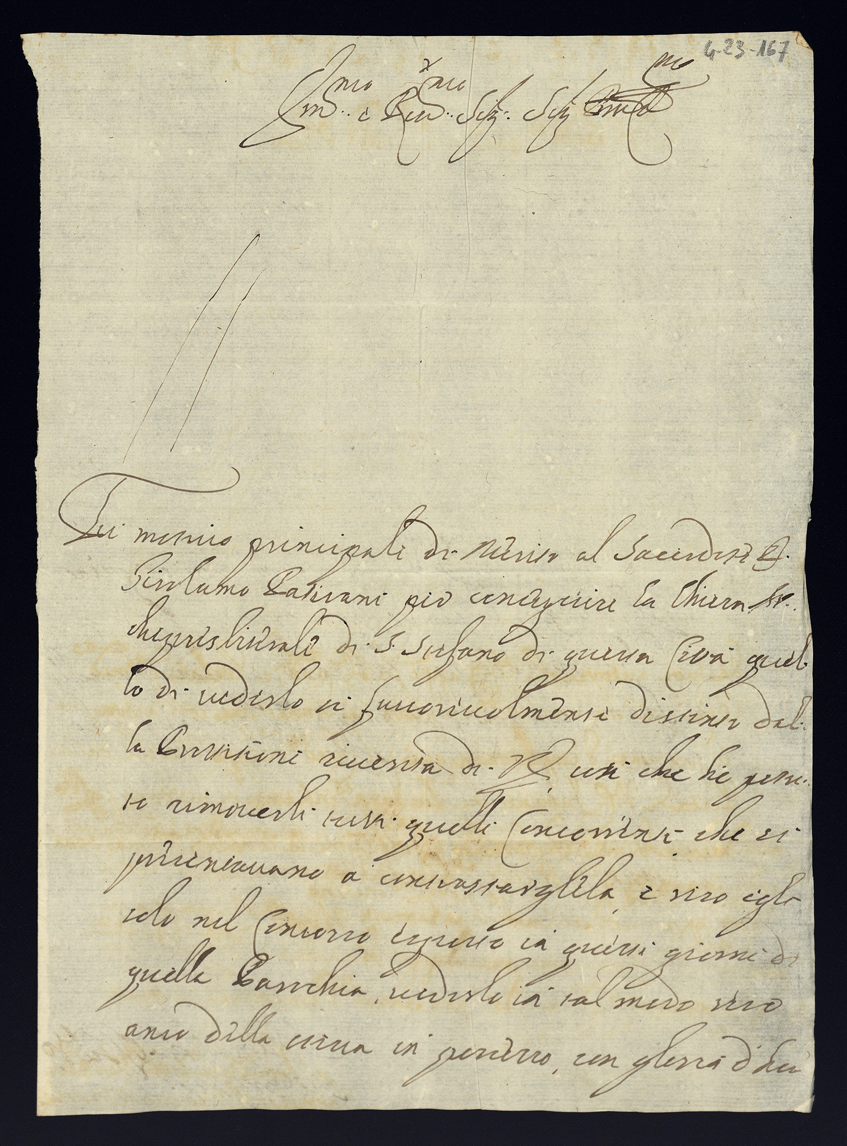 4-23-167
Em.mo e Rev.mo Sig. Sig.
Fu motivo principale di merito al Sacerdote D.
Girolamo per conseguire la Chiesa Ar-
chipresbiterale di S. Stefano di questa Città quel-
lo di vederlo sì favorevolmente distinto dal-
la Protezione riverita di V.E. così che hà potu-
to rimoverli tutti quelli Concorrenti che si
presentavano a contrastargliela, e reso egli
solo nel Concorso espresso in questi giorni di
quella Parochia, vederlo in tal modo reso
anco della stessa in possesso, con gloria d'hav